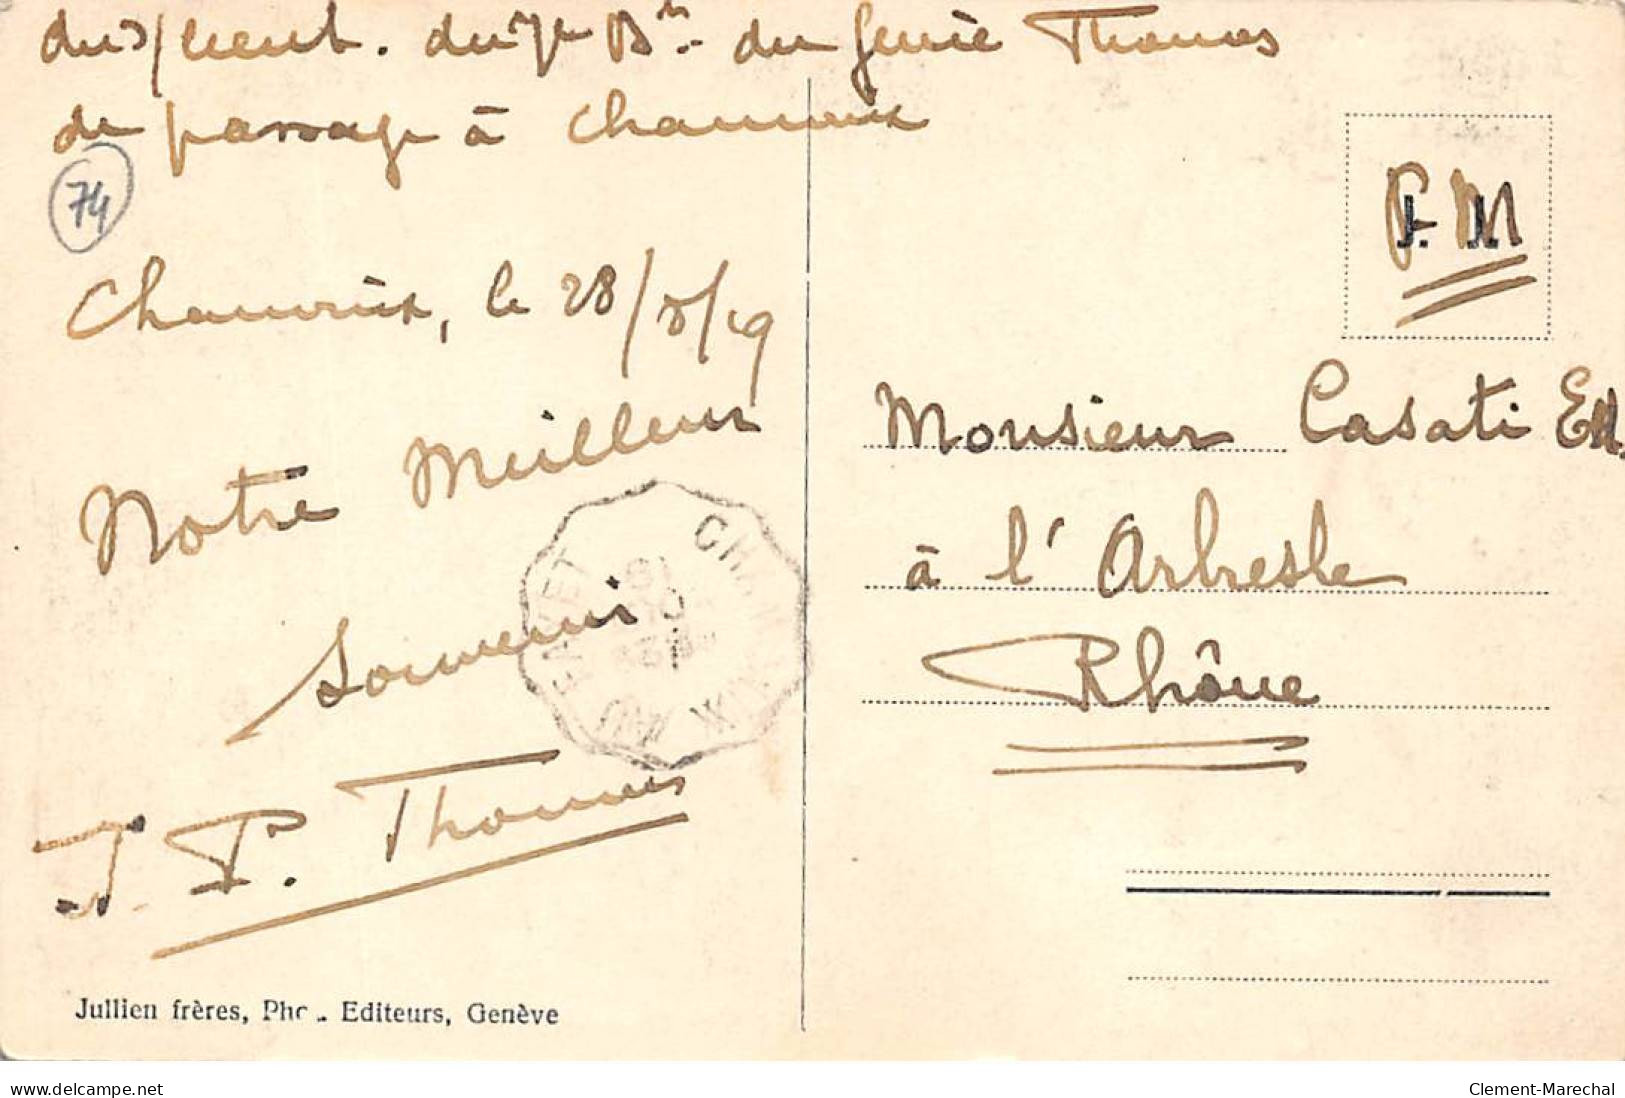 du s/lieut. du 7e Bn. du Génie Thomas
de passage à Chamonix
74
Chamonix, le 28/8/19
Notre Meilleur
Souvenir
J. P. Thomas
F. M
Monsieur Casati
à l'Arbresle
Rhône
CHAMONIX AU FAYET
Jullien frères, Editeurs, Genève
www.delcampe.net
Clement-Marechal